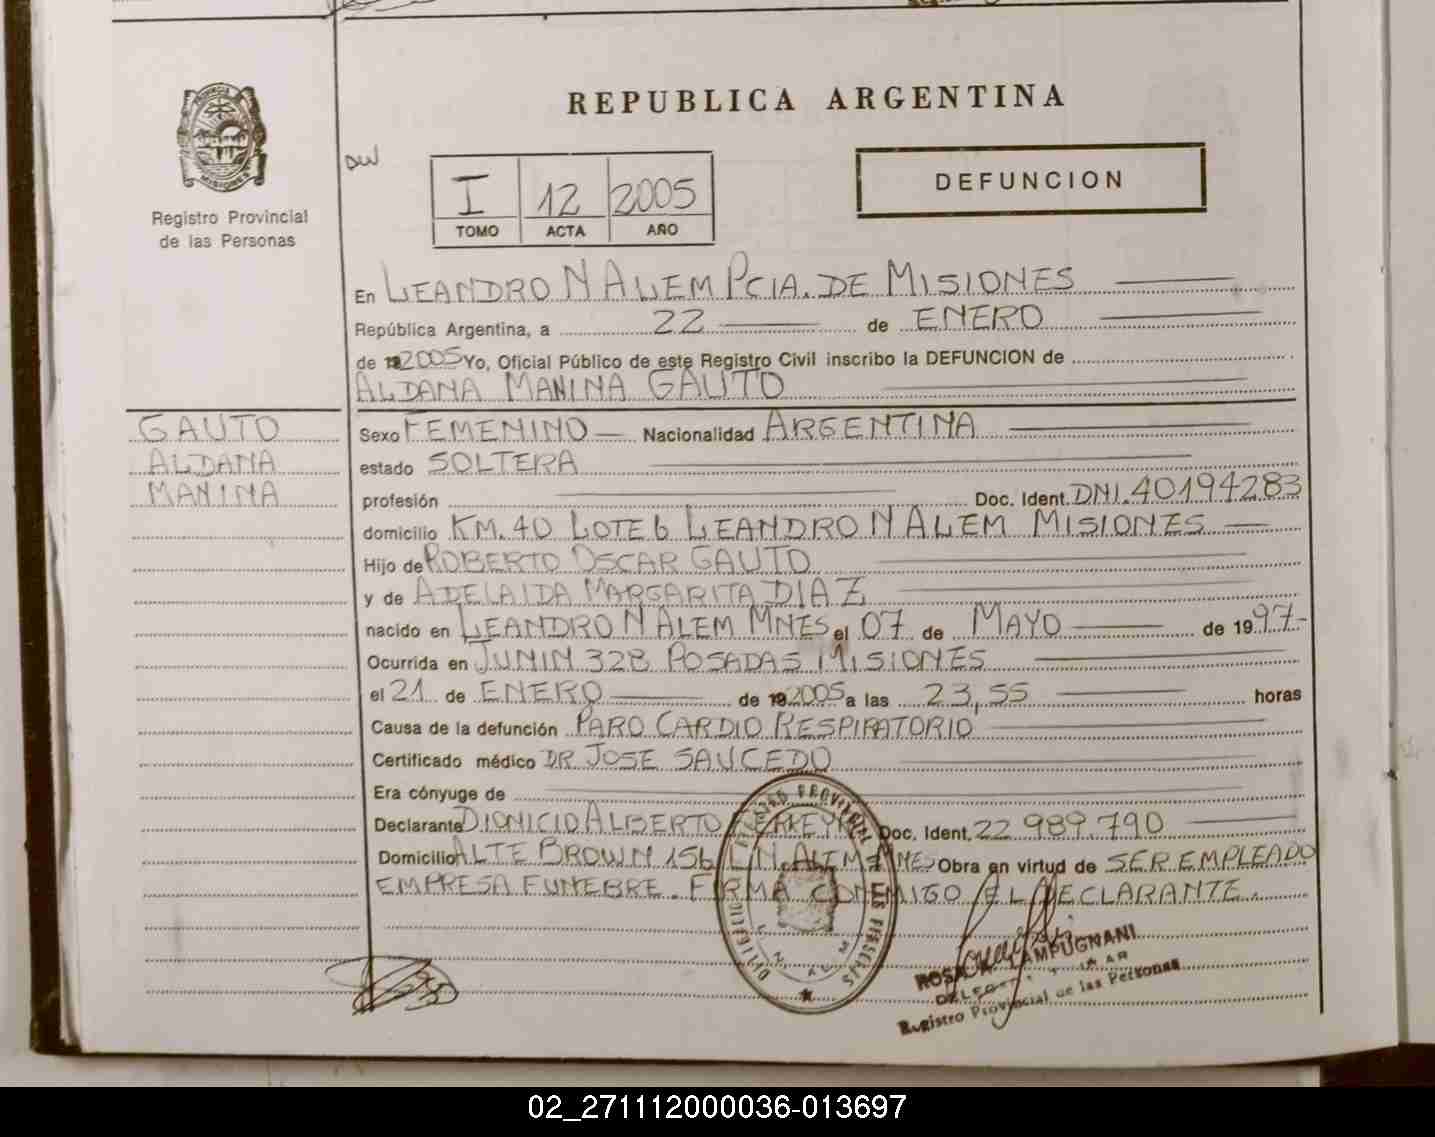 REPUBLICA ARGENTINA
PROVINCIA
MISIONES
Registro Provincial
de las Personas
I 12 2005
TOMO ACTA AÑO
DEFUNCION
En LEANDRO N ALEM PCIA. DE MISIONES
República Argentina, a 22 de ENERO
de 2005 Yo, Oficial Público de este Registro Civil inscribo la DEFUNCION de
ALDANA MANINA GAUTO
GAUTO
ALDANA
MANINA
Sexo FEMENINO Nacionalidad ARGENTINA
estado SOLTERA
profesión Doc. Ident. DNI. 40194283
domicilio KM. 40 LOTE 6 LEANDRO N ALEM MISIONES
Hijo de ROBERTO OSCAR GAUTO
y de ADELAIDA MARGARITA DIAZ
nacido en LEANDRO N ALEM MNES el 07 de MAYO de 1997-
Ocurrida en JUNIN 328 POSADAS MISIONES
el 21 de ENERO de 2005 a las 23,55 horas
Causa de la defunción PARO CARDIO RESPIRATORIO
Certificado médico DR JOSE SAUCEDO
Era cónyuge de
Declarante DIONICIO ALBERTO Doc. Ident. 22 989.790
Domicilio ALTE BROWN 156 L.N. ALEM MNES Obra en virtud de SER EMPLEADO
EMPRESA FUNEBRE. FIRMA CONMIGO EL DECLARANTE.
LAMPUGNANI
Registro Provincial de las Personas
02_271112000036-013697